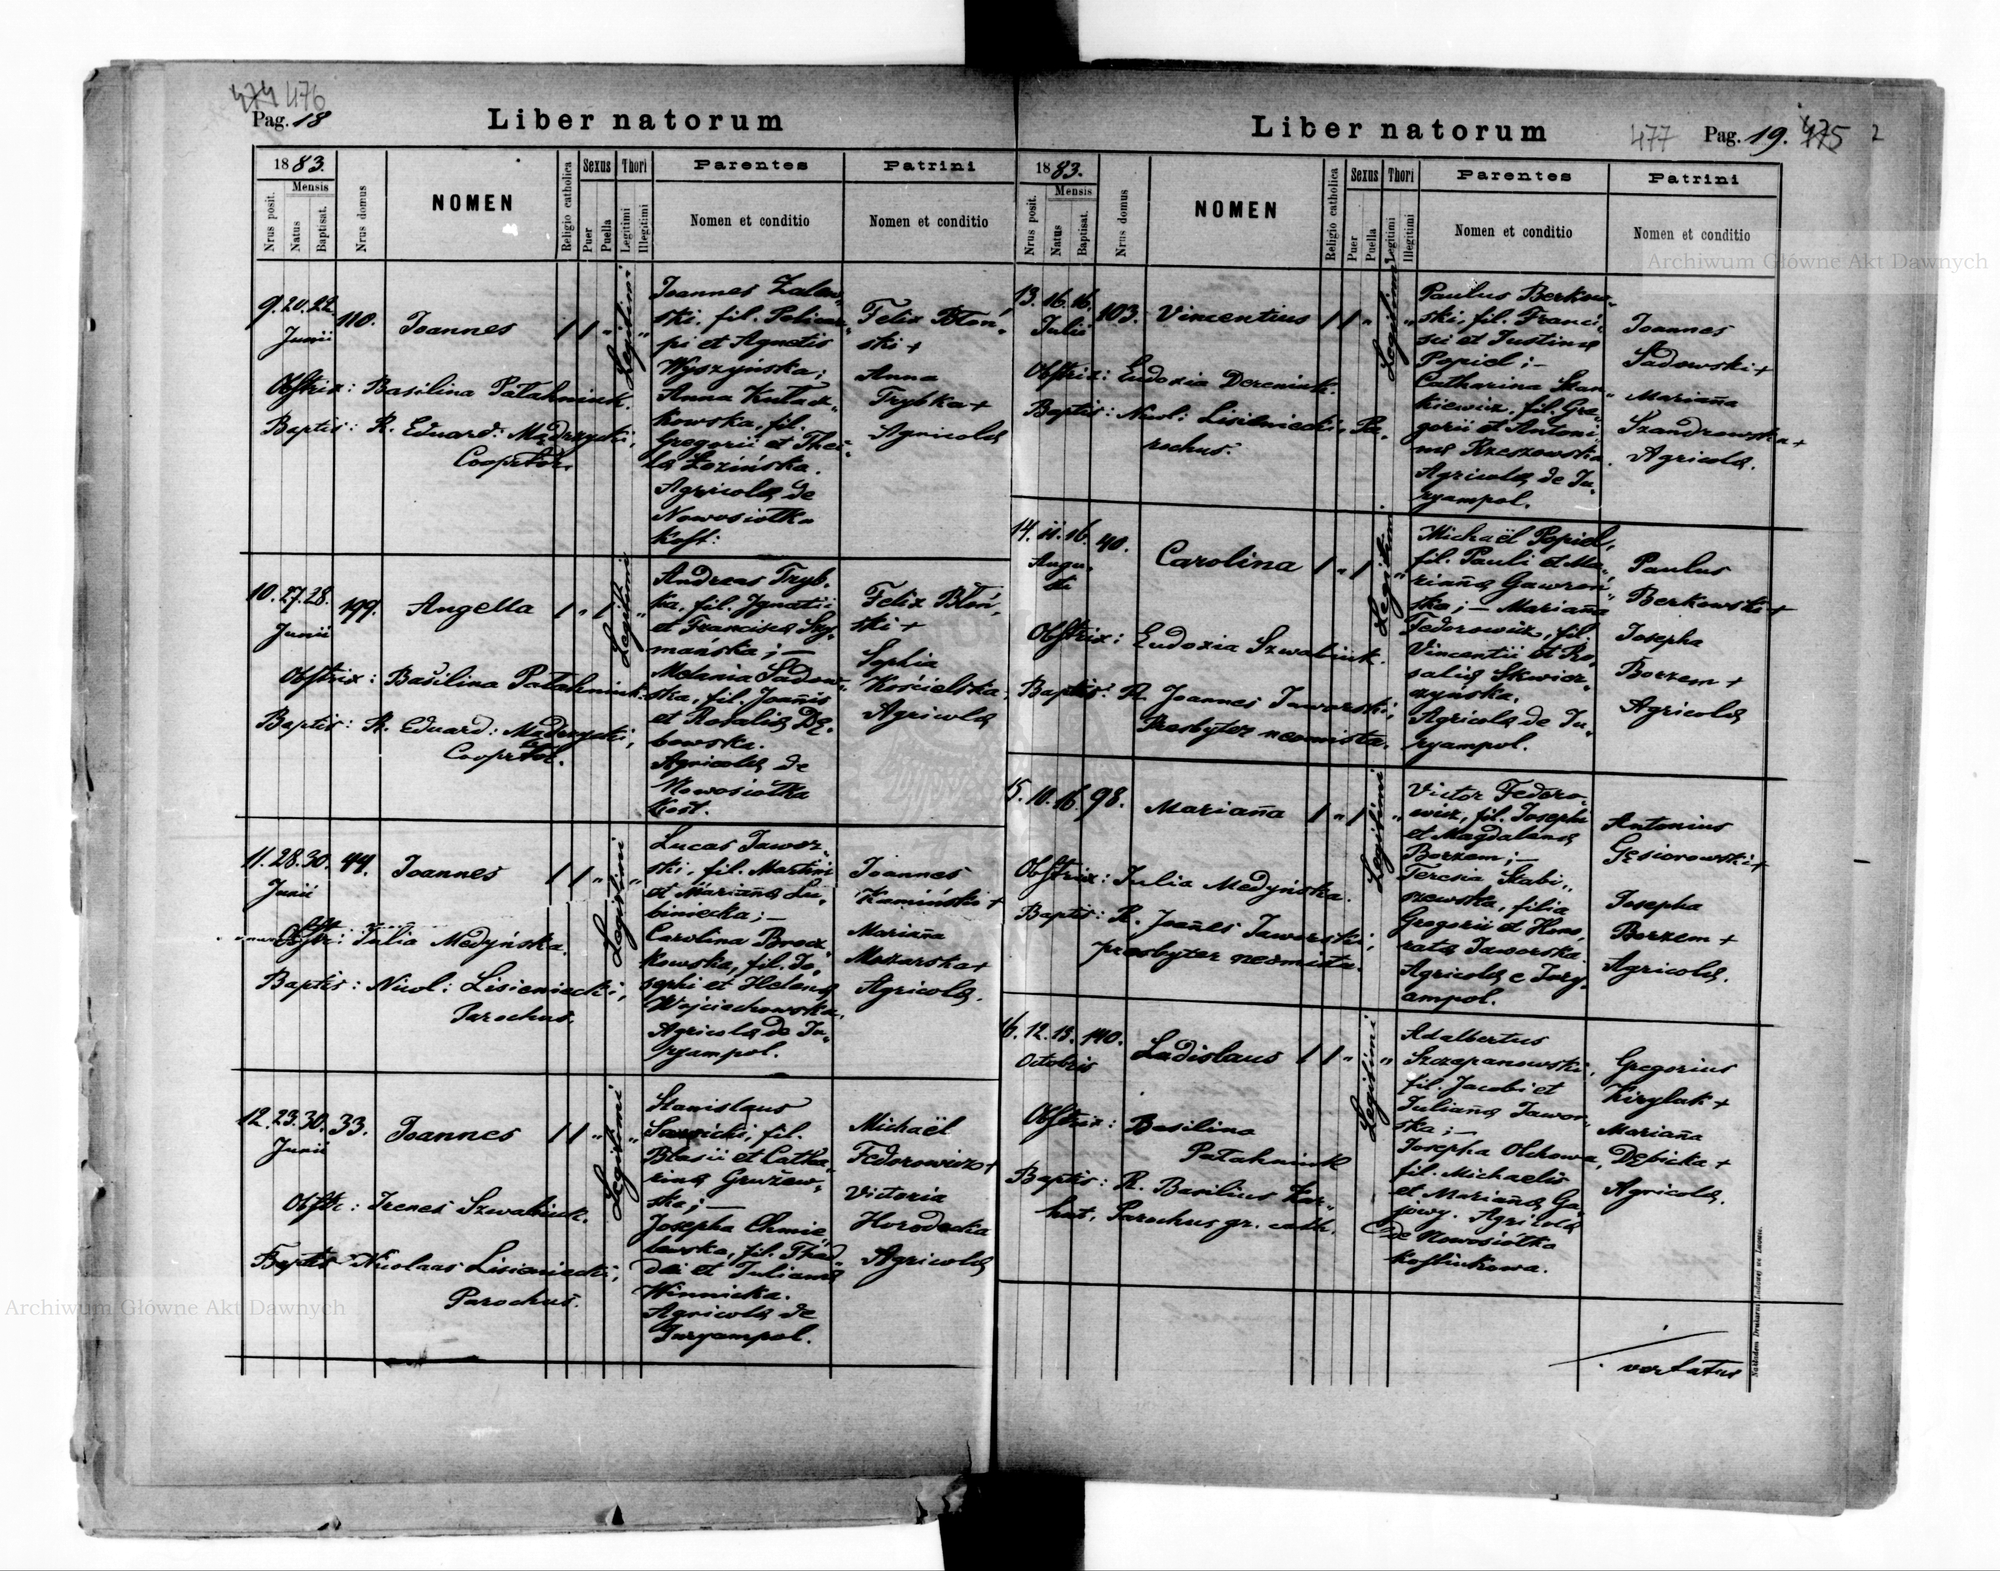 474 476
Pag. 18
Liber natorum
1883.
Mensis
Nrus posit.
Natus
Baptisat.
Nrus domus
NOMEN
Religio catholica
Sexus
Puer
Puella
Thori
Legitimi
Illegitimi
Parentes
Nomen et conditio
Patrini
Nomen et conditio
9. 20. 22. 110. Joannes 1 1 " Legitimi "
Junii
Obstrix: Basilina Patahniuk.
Baptis: R. Eduard: Mądrzycki,
Cooprtor.
Joannes Zalew„
ski, fil. Policar„
pi et Agnetis
Wyszyńska;
Anna Kulacz„
kowska, fil.
Gregorii et Thec„
la Łozińska.
Agricolae de
Nowosiołka
Kost:
Felix Błoń„
ski +
Anna
Trybka +
Agricolae
10. 27. 28. 199. Angella 1 " 1 Legitimi "
Junii
Obstrix: Basilina Patahniuk.
Baptis: R. Eduard: Mądrzycki,
Cooprtor.
Andreas Tryb„
ka, fil. Ignatii
et Francisca Szy„
mańska; —
Melania Sadow„
ska, fil. Joañis
et Rosalia Dę„
bowska.
Agricolae de
Nowosiołka
Kost.
Felix Błoń„
ski +
Sophia
Kościelska,
Agricolae
11. 28. 30. 44. Joannes 1 1 " Legitimi "
Junii
Obstr: Julia Medyńska.
Baptis: Nicol: Lisieniecki,
Parochus.
Lucas Jawor„
ski, fil. Martini
et Mariaña Lu„
biniecka; —
Carolina Brocz„
kowska, fil. Jo„
sephi et Helena
Wojciechowska.
Agricolae de Ju„
ryampol.
Joannes
Kamiński +
Mariaña
Mazarska +
Agricolae.
12. 23. 30. 33. Joannes 1 1 " Legitimi "
Junii
Obstr: Irenes Szwabiuk.
Baptis Nicolaus Lisieniecki,
Parochus.
Stanislaus
Sawicki, fil.
Blasii et Catha„
rina Gruzew„
ska; —
Josepha Chmie„
lewska, fil. Thad„
dei et Juliana
Winnicka.
Agricolae de
Juryampol.
Michaël
Fedorowicz +
Victoria
Horodecka
Agricolae
Liber natorum
477
Pag. 19. 475
2
1883.
Mensis
Nrus posit.
Natus
Baptisat.
Nrus domus
NOMEN
Religio catholica
Sexus
Puer
Puella
Thori
Legitimi
Illegitimi
Parentes
Nomen et conditio
Patrini
Nomen et conditio
13. 16. 16. 103. Vincentius 1 1 " Legitimi "
Julii
Obstrix: Eudoxia Dereniuk.
Baptis: Nicol: Lisieniecki, Pa„
rochus.
Paulus Berkow„
ski, fil. Franci„
sci et Justina
Popiel; —
Catharina Stan„
kiewicz. fil. Gre„
gorii et Antoni„
na Rzeszowska.
Agricolae de Ju„
ryampol.
Joannes
Sadowski +
Mariaña
Szandrowska +
Agricolae.
14. 11. 16. 40. Carolina 1 " 1 Legitimi "
Augu„
sti
Obstrix: Eudoxia Szwabiuk.
Baptis: R. Joannes Jaworski,
Presbyter neomista.
Michaël Popiel,
fil. Pauli et Ma„
riaña Gawroń„
ska; — Mariaña
Fedorowicz, fil.
Vincentii et Ro„
salia Skwier„
czyńska.
Agricolae de Ju„
ryampol.
Paulus
Berkowski +
Josepha
Borzem +
Agricolae
15. 10. 16. 98. Mariaña 1 " 1 Legitimi "
Obstrix: Julia Medyńska.
Baptis: R. Joañes Jaworski,
presbyter neomista.
Victor Fedoro„
wicz, fil. Josephi
et Magdalena
Borzem; —
Teresia Stabi„
szewska, filia
Gregorii et Hono„
rata Jaworska.
Agricolae e Jury„
ampol.
Antonius
Gęsiorowski +
Josepha
Borzem +
Agricolae.
16. 12. 13. 140. Ladislaus 1 1 " Legitimi "
Octobris
Obstrix: Basilina
Patahniuk
Baptis: R. Basilius Kar„
hut, Parochus gr. cath.
Adalbertus
Szczepanowski,
fil. Jacobi et
Juliana Jawor„
ska; —
Josepha Olchowa,
fil. Michaelis
et Mariaña Ga„
jowy. Agricolae
de Nowosiółka
kostiukowa.
Gregorius
Kirylak +
Mariaña
Dębicka +
Agricolae.
vertatur
Nakładem Drukarni Ludowej we Lwowie.
Archiwum Główne Akt Dawnych
Archiwum Główne Akt Dawnych